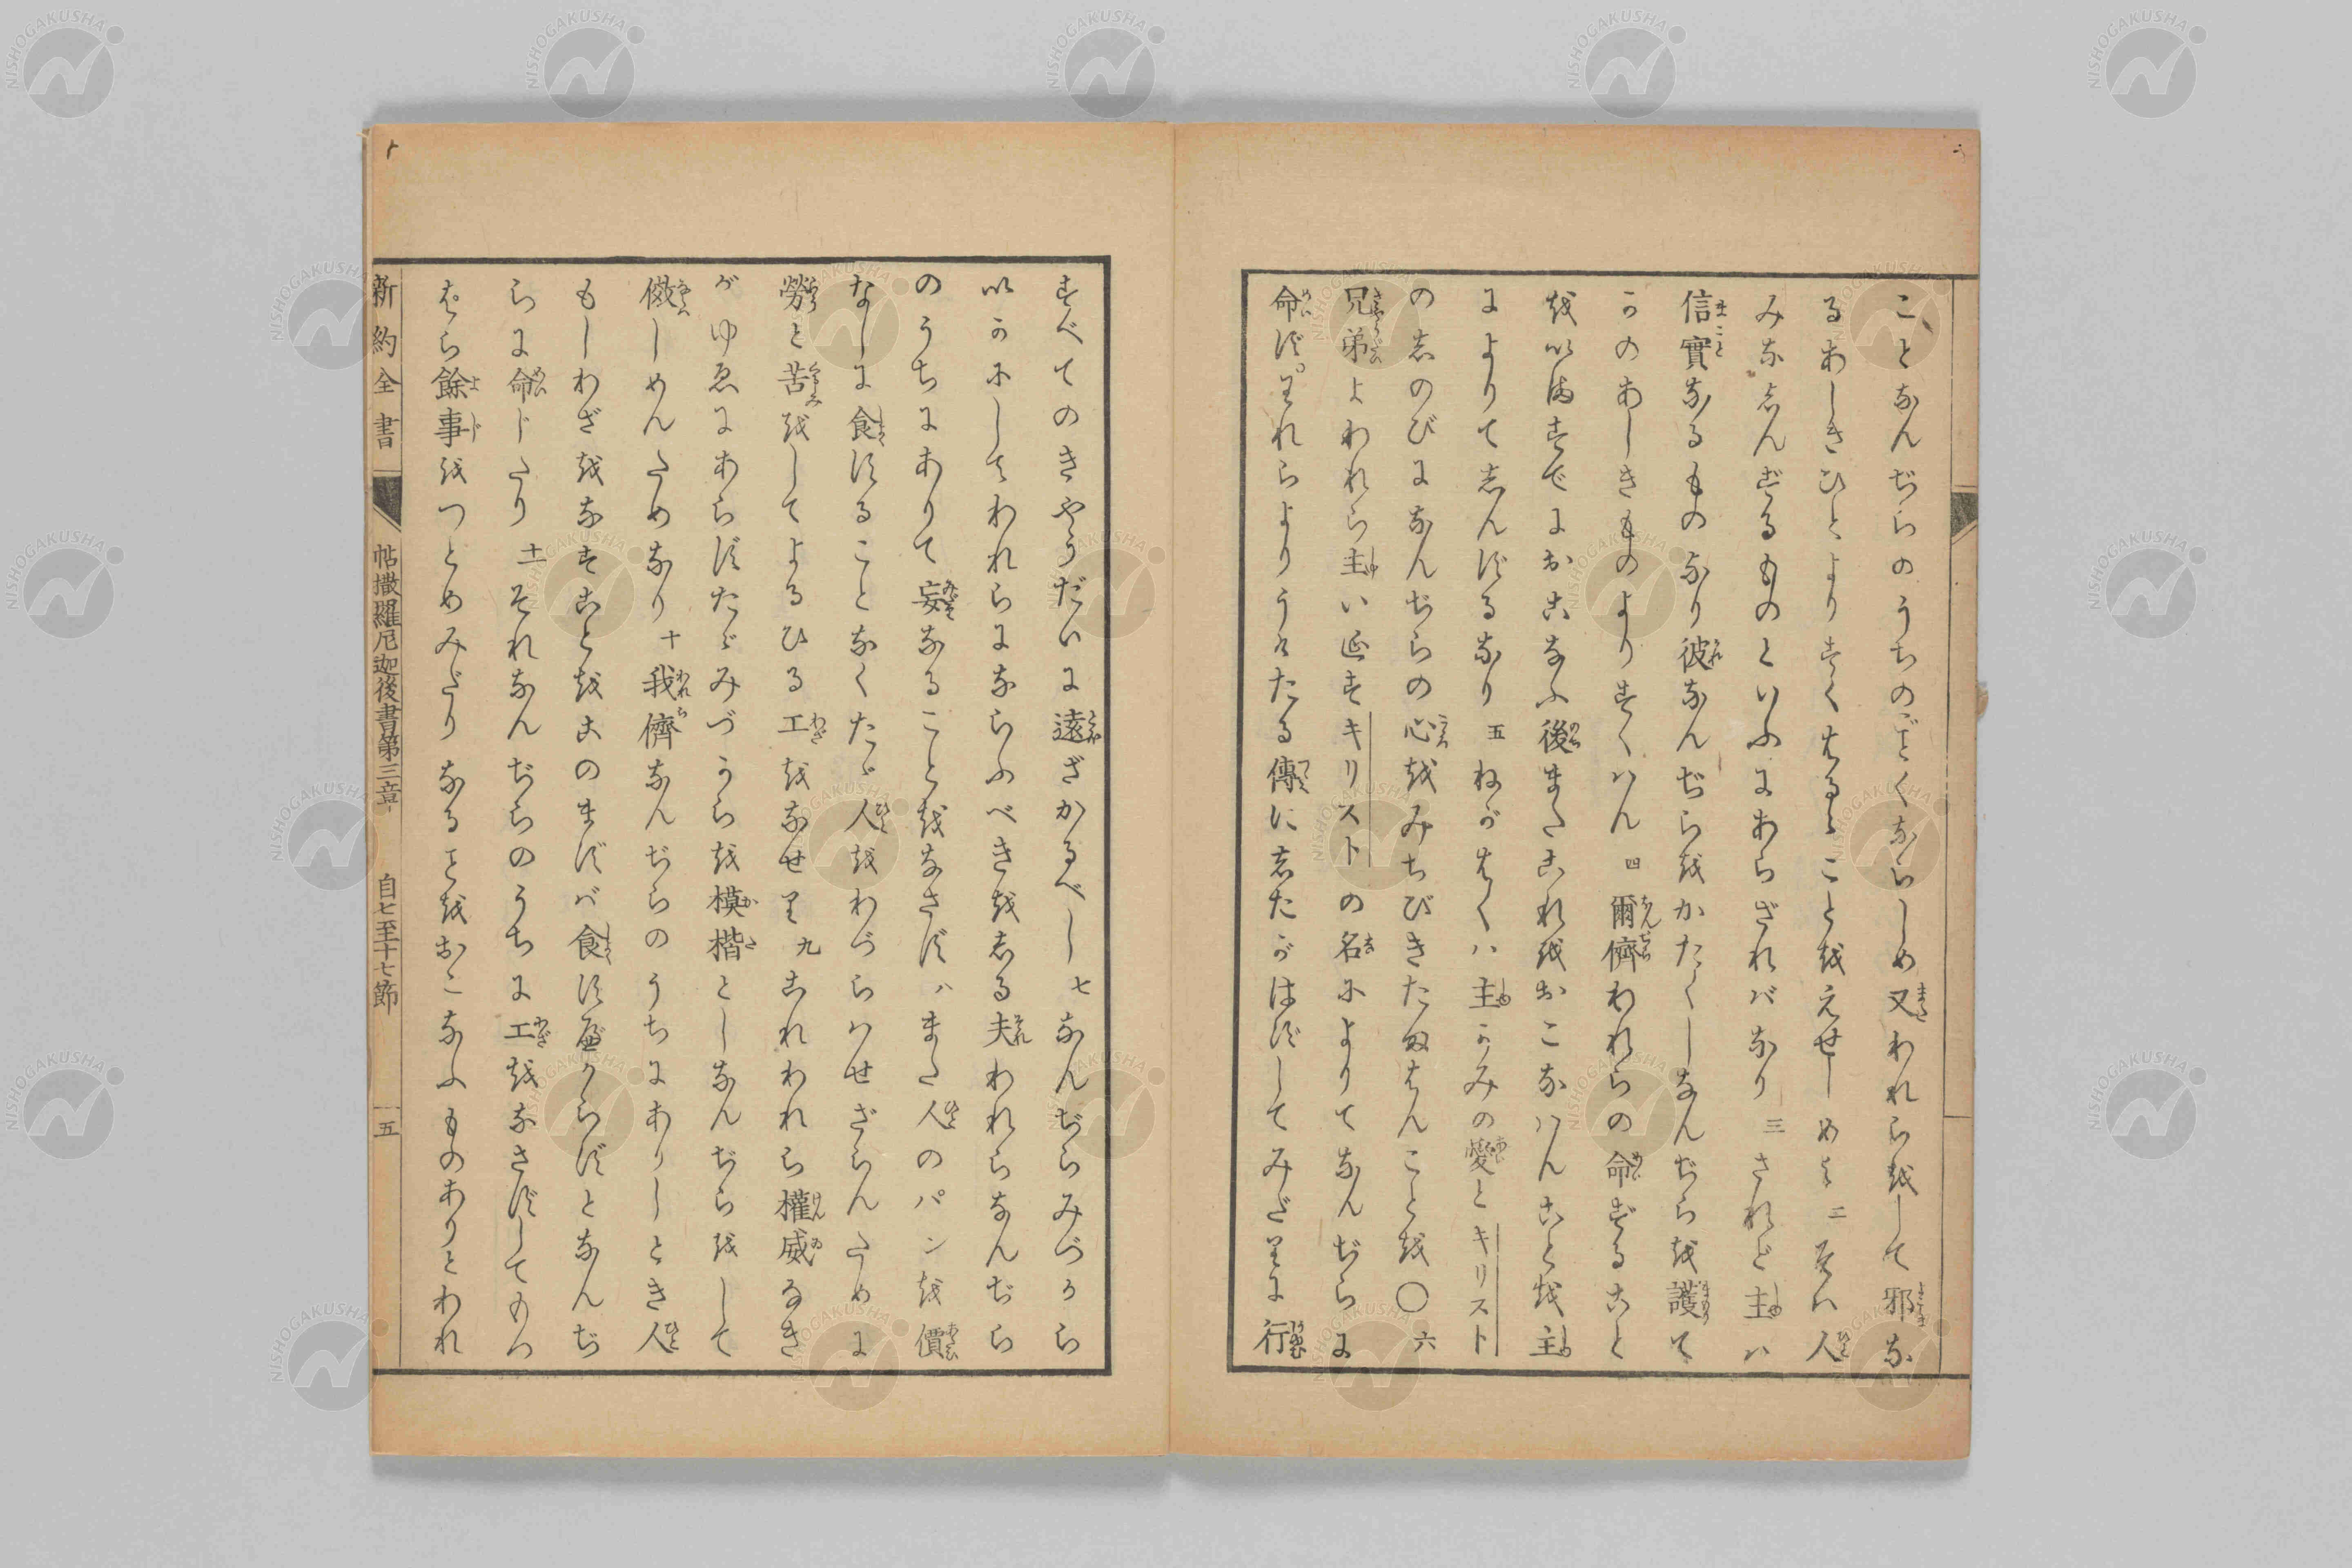 ことなんぢらのうちのごとくならしめ又われらをして邪な
るあしきひとよりすくはるゝことをえせしめよ 二 そハ人
みなしんずるものといふにあらざれバなり 三 されど主ハ
信實なるものなり彼なんぢらをかたくしなんぢらを護て
かのあしきものよりすくハん 四 爾儕われらの命ずること
を以ますでにおこなふ後またこれをおこなハんことを主
によりてしんずるなり 五 ねがはくハ主かみの愛とキリスト
のしのびになんぢらの心をみちびきたまはんことを ○ 六
兄弟よわれら主いエスキリストの名によりてなんぢらに
命ず。われらよりうけたる傳にしたがはずしてみだりに行
すべてのきやうだいに遠ざかるべし 七 なんぢらみづから
いかにしてわれらにならふべきをしる夫われらなんぢら
のうちにありて妄なることをなさず 八 また人のパンを價
なしに食することなくたゞ人をわづらハせざらんために
勞と苦をしてよるひる工をなせり 九 これわれら權威なき
がゆゑにあらずたゞみづからを模楷としなんぢらをして
傚しめんためなり 十 我儕なんぢらのうちにありしとき人
もしわざをなすことをこのまずバ食すべからずとなんぢ
らに命じたり 十一 それなんぢらのうちに工をなさずしてたゞ
はら餘事をつとめみだりなることをおこなふものありとわれ
新約全書 帖撒羅尼迦後書第三章 自七至十七節 五